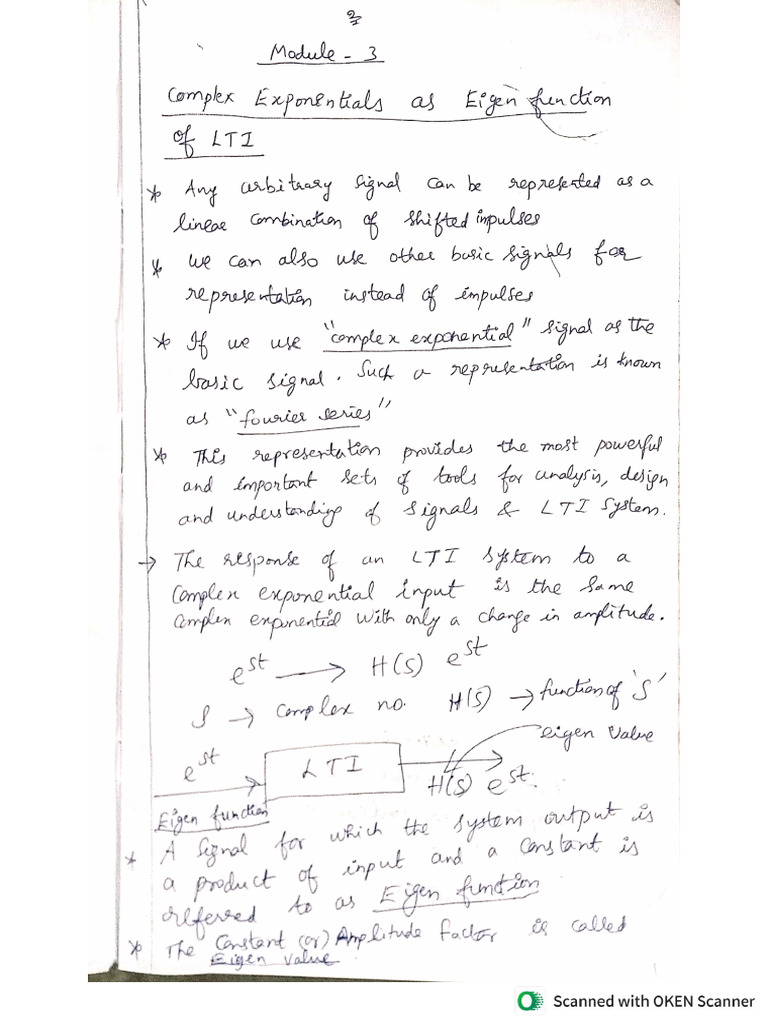 Module - 3
Complex Exponentials as Eigen function
of LTI
* Any arbitrary signal can be represented as a
linear combination of shifted impulses
* we can also use other basic signals for
representation instead of impulses
* If we use "complex exponential" signal as the
basic signal. Such a representation is known
as "fourier series"
* This representation provides the most powerful
and important sets of tools for analysis, design
and understanding of signals & LTI System.
→ The response of an LTI system to a
Complex exponential input is the same
complex exponential with only a change in amplitude.
e^st → H(S) e^st
S → Complex no. H(S) → function of 'S'
eigen value
e^st LTI H(S) e^st.
Eigen function
* A signal for which the system output is
a product of input and a constant is
referred to as Eigen function
* The Constant (or) Amplitude factor is called
Eigen value
Scanned with OKEN Scanner